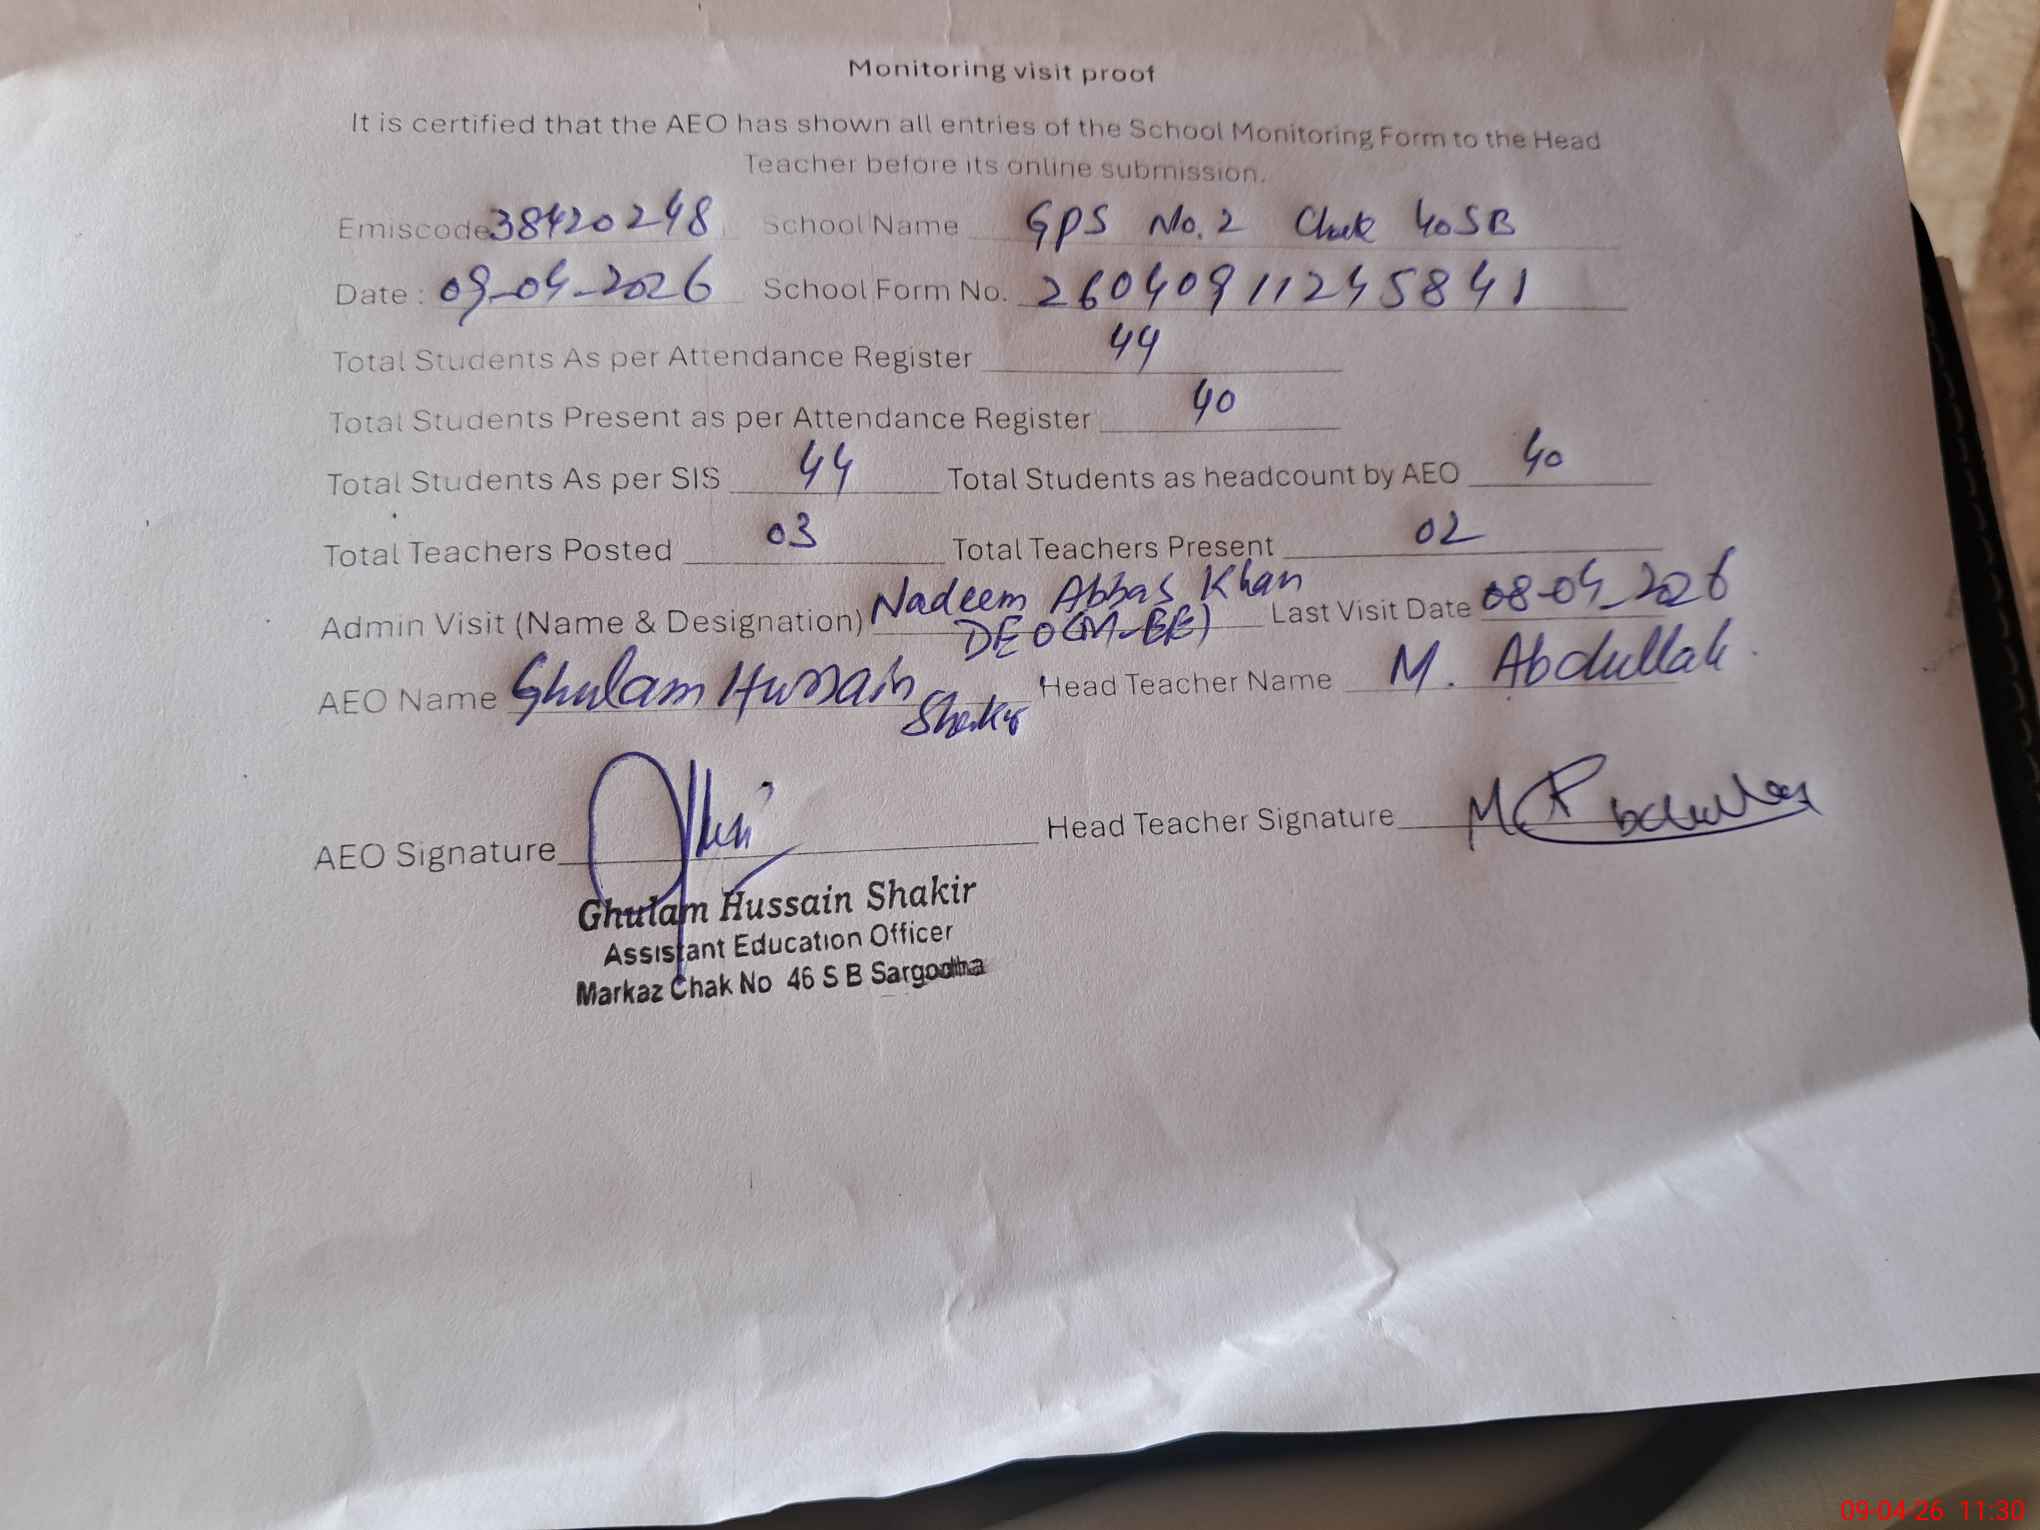 Monitoring visit proof
It is certified that the AEO has shown all entries of the School Monitoring Form to the Head
Teacher before its online submission.
Emiscode 38420248 School Name GPS No. 2 Chak 40SB
Date : 09-04-2026 School Form No. 26040911245841
Total Students As per Attendance Register 44
Total Students Present as per Attendance Register 40
Total Students As per SIS 44 Total Students as headcount by AEO 40
Total Teachers Posted 03 Total Teachers Present 02
Admin Visit (Name & Designation) Nadeem Abbas Khan Last Visit Date 08-04-2026
DEO(M-EE)
AEO Name Ghulam Hussain Head Teacher Name M. Abdullah.
Shakir
AEO Signature Head Teacher Signature M. Abdullah
Ghulam Hussain Shakir
Assistant Education Officer
Markaz Chak No 46 S B Sargodha
09-04-26 11:30